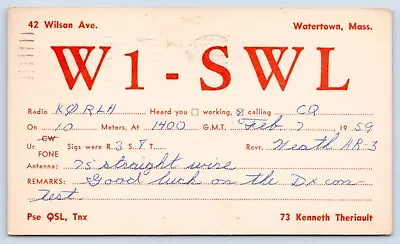 42 Wilson Ave. Watertown, Mass.
W1-SWL
Radio KØRLH Heard you ☐ working, ☒ calling CQ
On 10 Meters, At 1400 G.M.T. Feb 7 1959
CW
Ur FONE Sigs were R. 3 S. 8 T. Rcvr. Heath AR-3
Antenna: 75 straight wire
REMARKS: Good luck on the Dx con-
test.
Pse QSL, Tnx 73 Kenneth Theriault